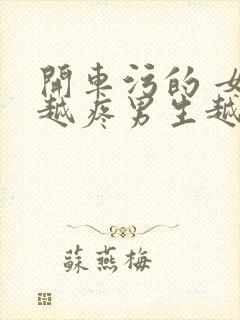 開車污的 女
越疼男生越
蘇燕梅